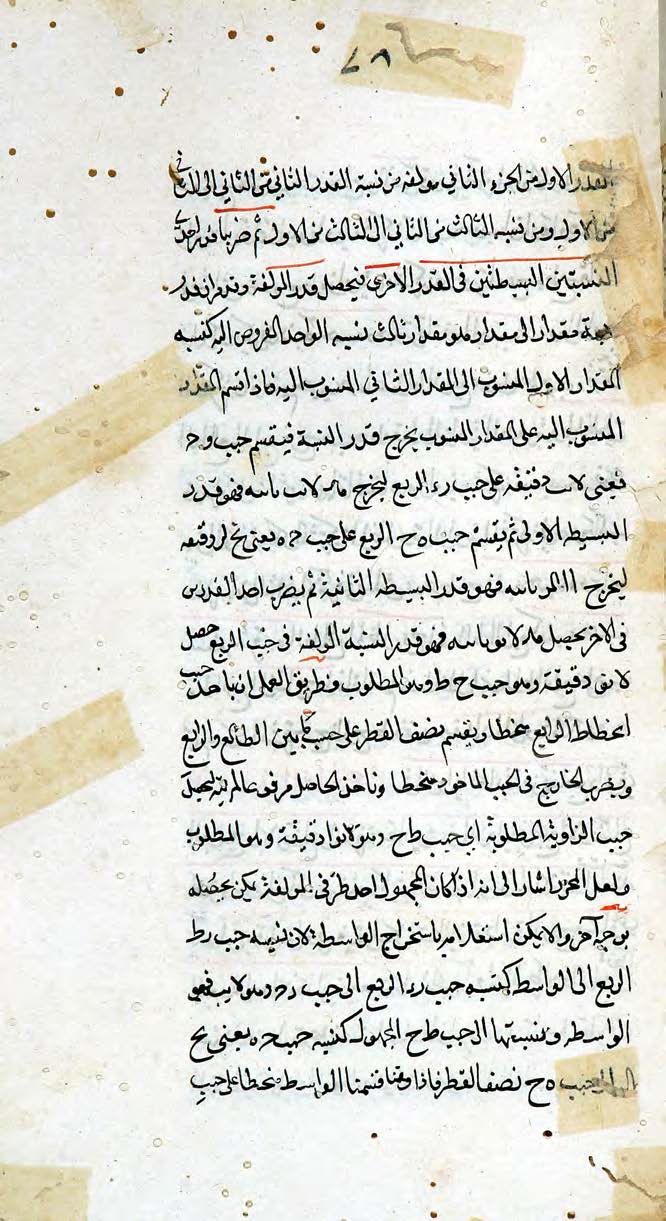 ٧٨
القدر الاول من الجزء الثاني مولفه من نسبة القدر الثاني من الثاني الى الثاني
من الاول ومن نسبه الثالث من الثاني الى الثالث من الاول ثم ضربنا قدر احدى
النسبتين البسيطتين في القدر الاخرى فيحصل قدر المولفة وقدر ان قدر
نسبة مقدار الى مقدار هو مقدار ثالث نسبه الواحد المفروض اليه كنسبه
المقدار الاول المنسوب الى المقدار الثاني المنسوب اليه فاذا قسم المقدار
المنسوب اليه على المقدار المنسوب يخرج قدر النسبة فيقسم جيب
يعنى دقيقه على جيب ر ه الربع ليخرج فهو قدر
البسيطه الاولى ثم يقسم جيب ه ح الربع على جيب ح ه يعنى دقيقه
ليخرج فهو قدر البسيطه الثانية ثم يضرب احد القدرين
في الاخر يحصل فهو قدر النسبة المولفة في جيب الربع حصل
دقيقة وهو جيب ح ط وهو المطلوب وطريق العمل ان ناخذ جيب
انحطاط الرابع منحطا ويقسم نصف القطر على جيب ما بين الطالع والرابع
ويضرب الخارج في الجيب الماخوذ منحطا وناخذ الحاصل مرفوعا لم يتم ليحصل
جيب الزاوية المطلوبة اي جيب ط ح دقيقة وهو المطلوب
ولعل المحرر اشار الى انه اذا كان المجهول احد طرفي المولفة يمكن تحصيله
بوجه آخر والا يمكن استعلامه باستخراج الواسطة لان نسبه جيب ر ط
الربع الى الواسط كنسبه جيب ر ه الربع الى جيب فهي
الواسطه ونسبتها الى جيب ط ح المجهول كنسبه جيب ح ه يعنى
الى جيب ه ح نصف القطر فاذا قسمنا الواسط منحطا على جيب